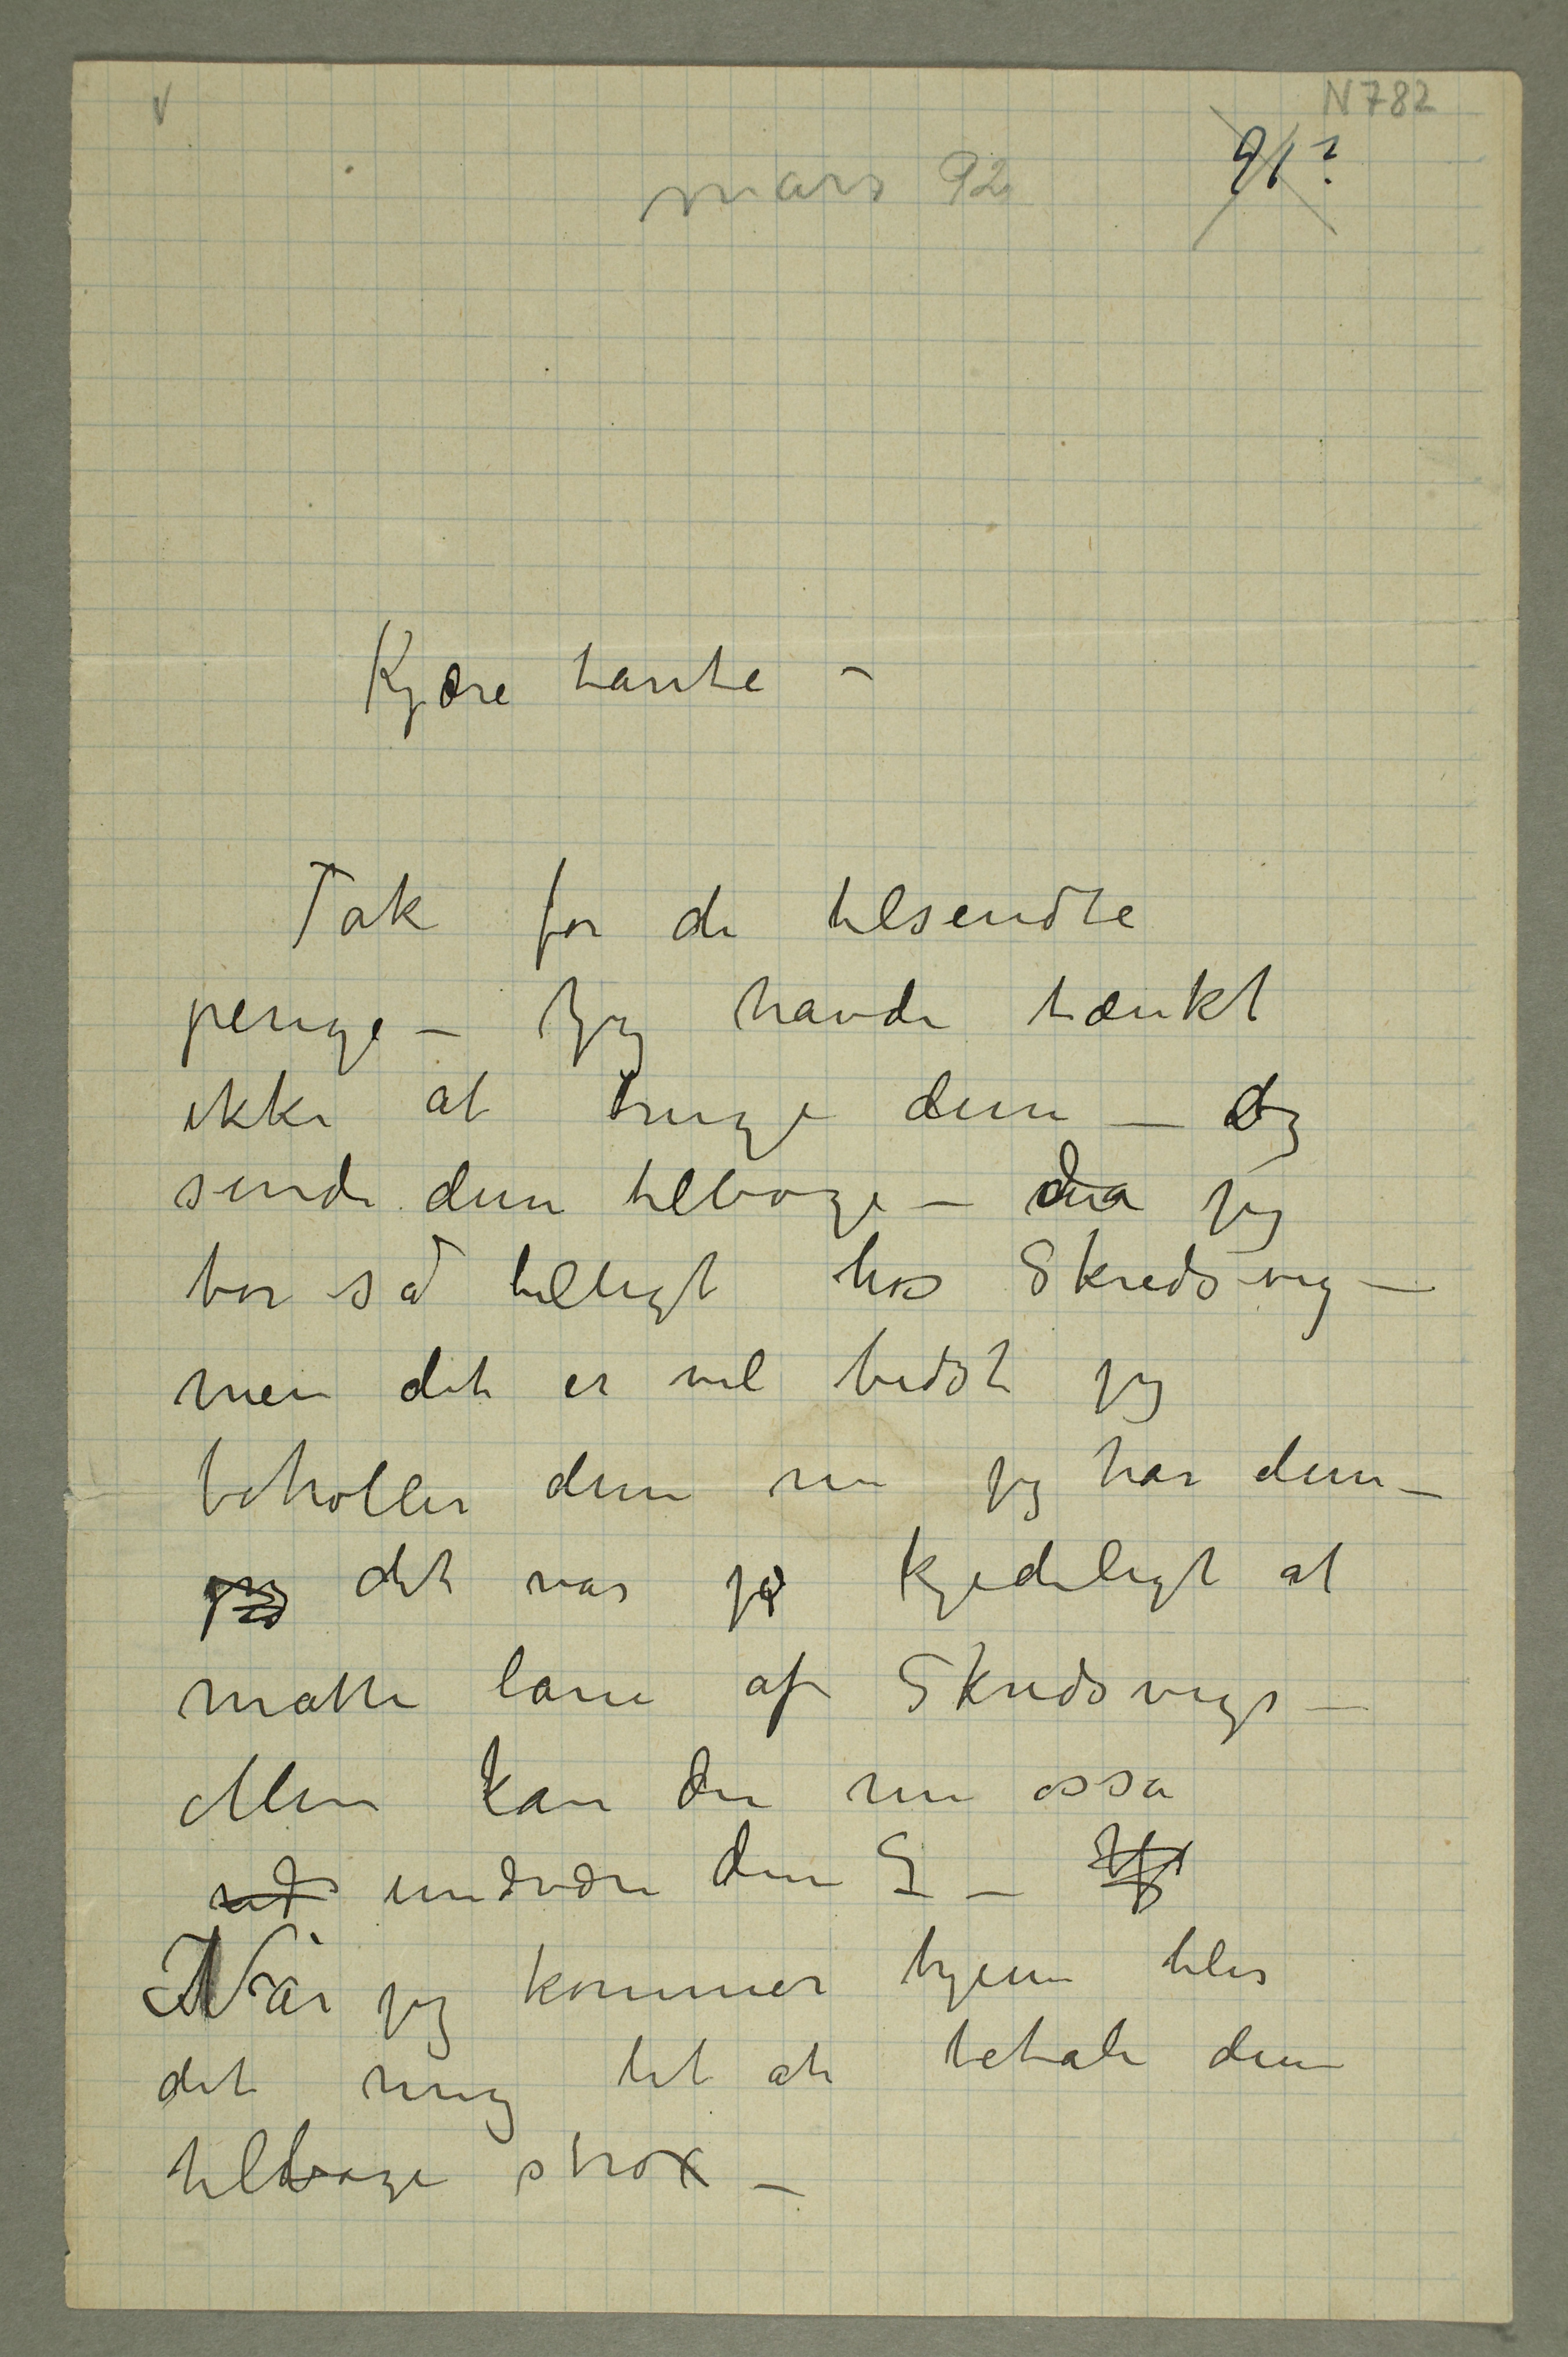 N 782
91?
mars 92
Kjære tante –
Tak for de tilsendte
penge – Jeg havde tænkt
ikke at bruge dem – og
sende dem tilbage – da jeg
bor så billigt hos Skredsvig –
men det er vel bedst jeg
beholler dem nu jeg har dem –
det var jo kjedeligt at
måtte låne af Skredsvigs –
Men kan du nu osså
undvære dem? –
Når jeg kommer hjem blir
det mig let at betale dem
tilbage strax –